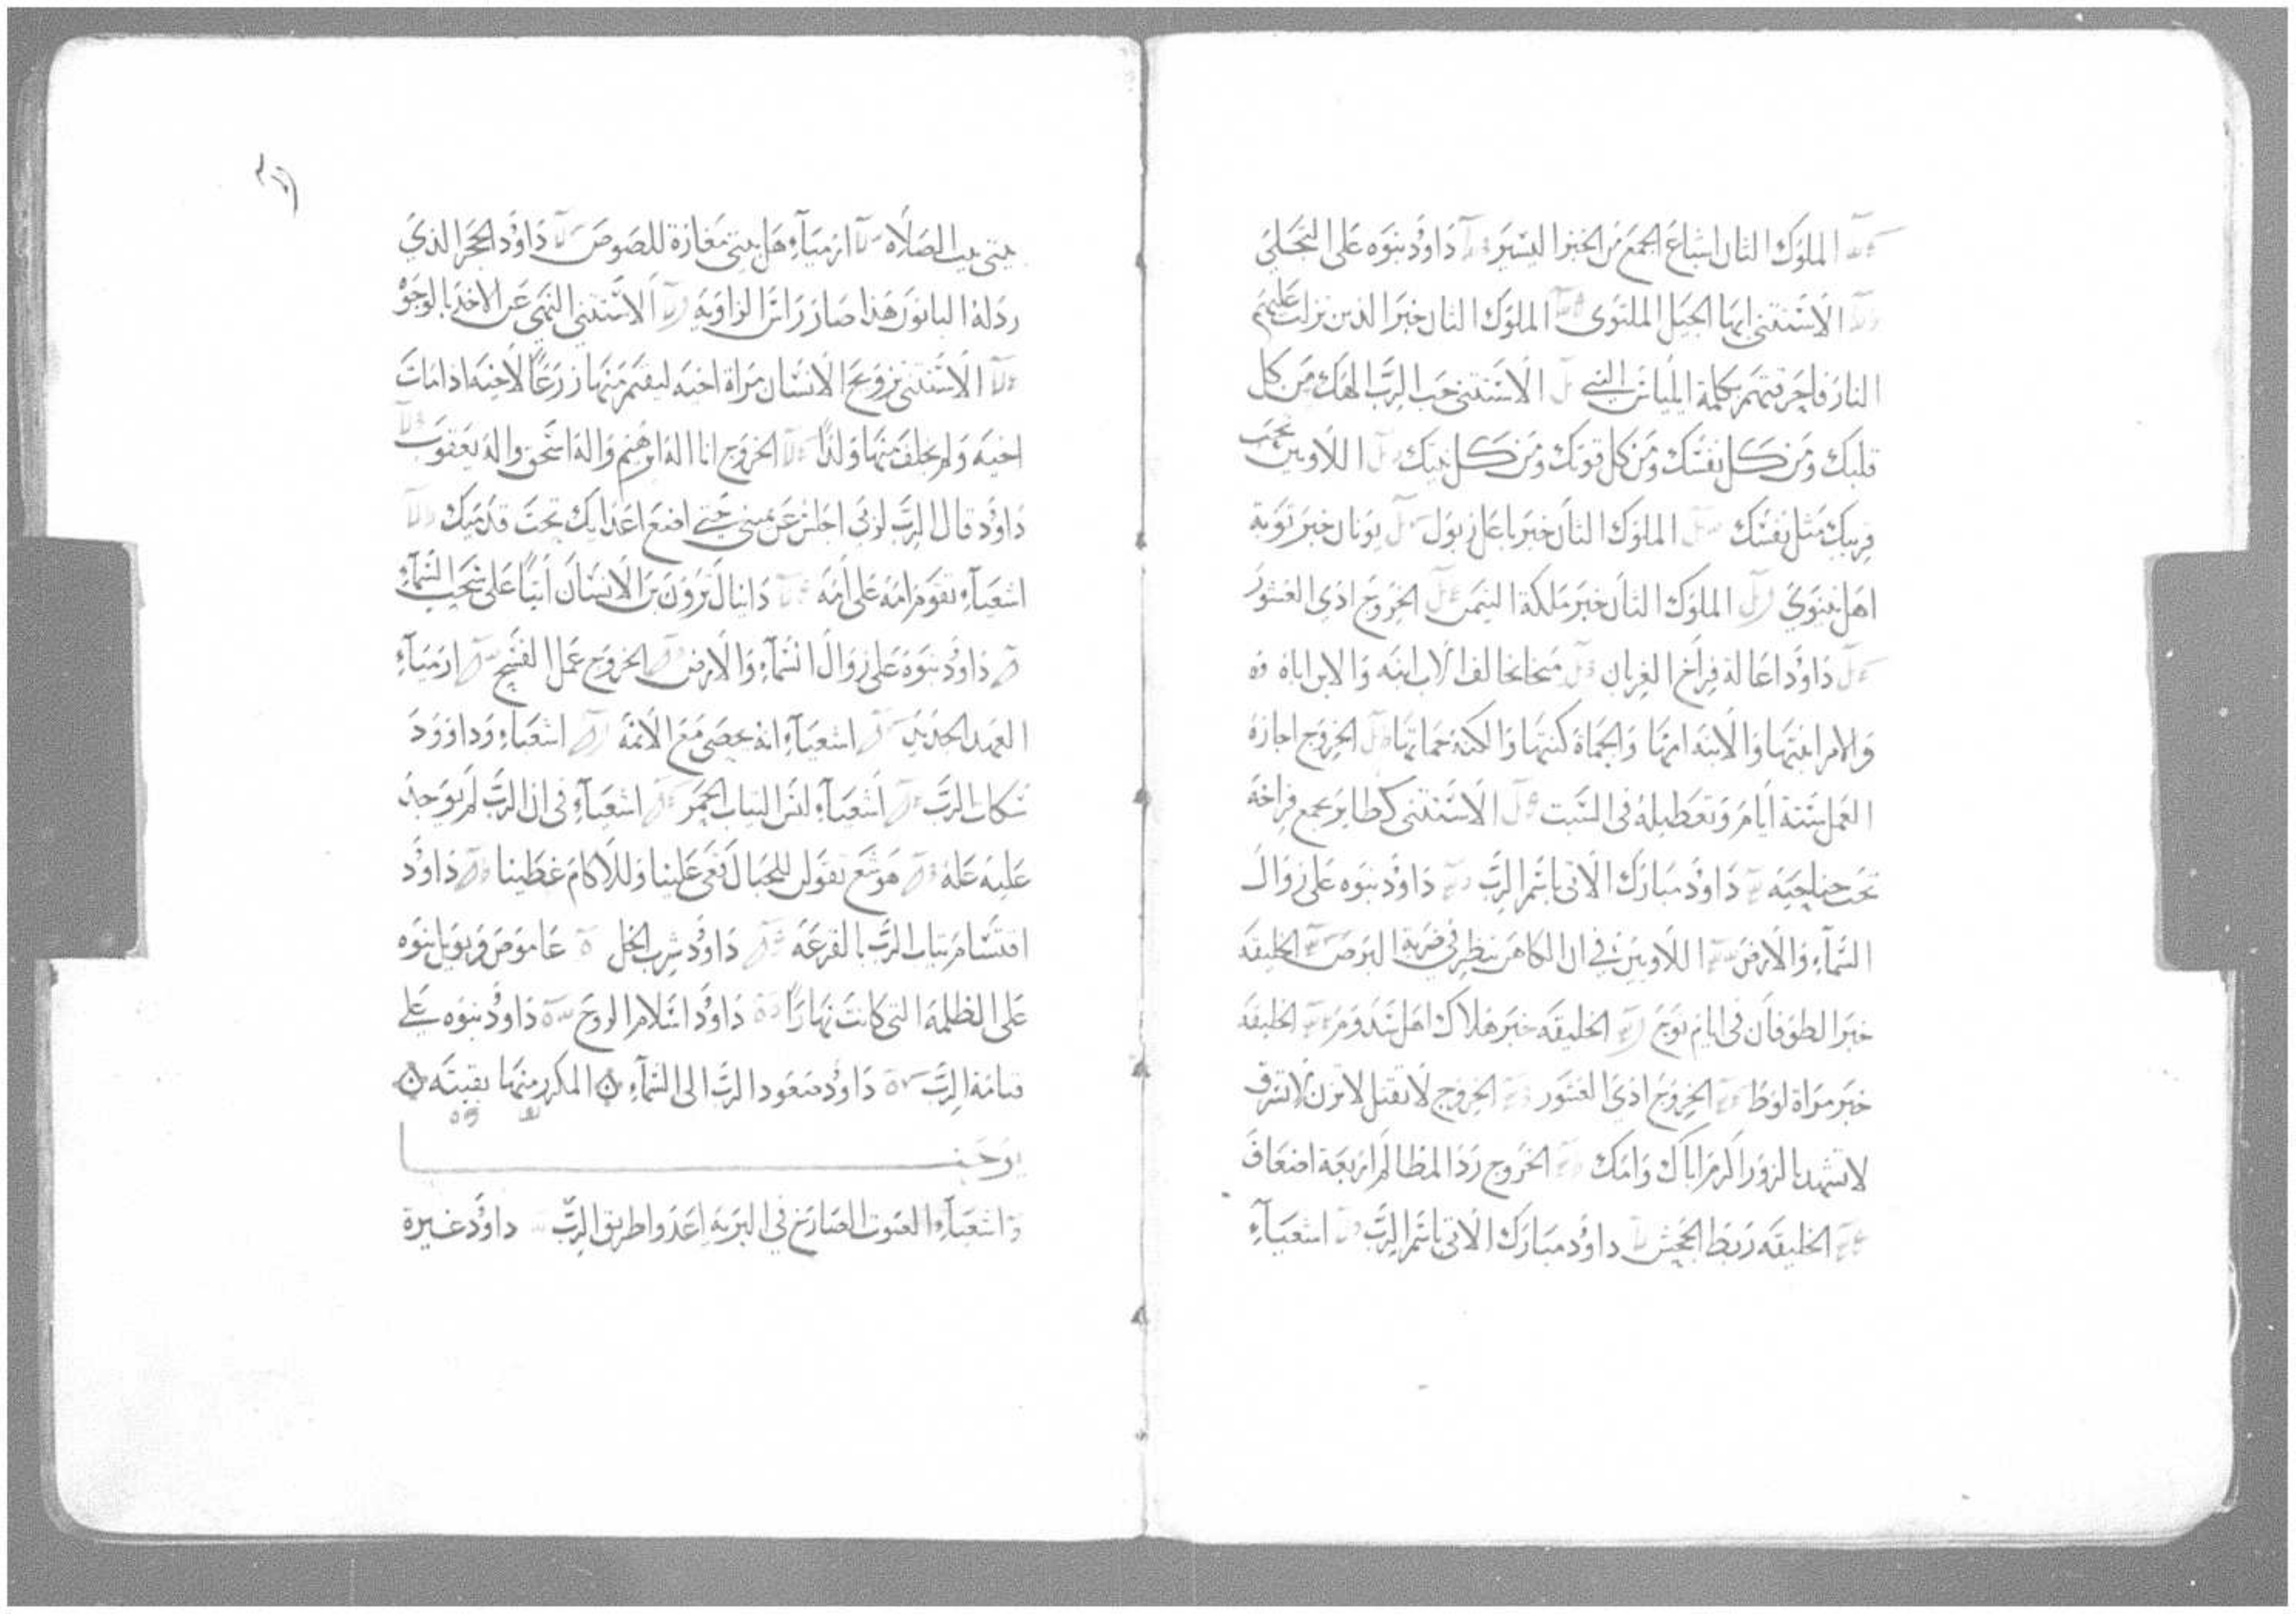 الملوك الثان اشباع الجمع من الخبز اليسير داوُد نبوه على التجلي
الاستثني ايها الجيل الملتوي الملوك الثان خبر الذين نزلت عليهم
النار فاحرقتهم بكلمة الياس النبي الاستثني حب الرب الهك من كل
قلبك ومن كل نفسك ومن كل قوتك ومن كل نيتك اللاويين تحب
قريبك مثل نفسك الملوك الثان خبر باعل زبول يونان خبر توبة
اهل نينوي الملوك الثان خبر ملكة اليمن الخروج اذي العشور
داوُد اعالة فراخ الغربان ميخا يخالف الاب ابنه والابن اباه
والام ابنتها والابنه امها والحماة كنتها والكنه حماتها الخروج اجازة
العمل ستة ايام وتعطيله في السبت الاستثني كطاير يجمع فراخه
تحت جناحيه داوُد مبارك الاتي باسم الرب داوُد نبوه على زوال
السمآء والارض اللاويين في ان الكاهن ينظر في ضربة البرص الخليقه
خبر الطوفان في ايام نوح الخليقه خبر هلاك اهل سدوم الخليقه
خبر مراة لوط الخروج اذي العشور الخروج لا تقتل لا تزن لا تسرق
لا تشهد بالزور اكرم اباك وامك الخروج رد المظالم اربعة اضعاف
الخليقه ربط الجحش داوُد مبارك الاتي باسم الرب اشعيآء
بيتي بيت الصلاه ارميآء هل بيتي مغارة للصوص داوُد الحجر الذي
رذله البانون هذا صار راس الزاويه الاستثني النهي عن الاخذ بالوجوه
الاستثني تزويج الانسان مراة اخيه ليقيم منها زرعًا لاخيه اذا مات
اخيه ولم يخلف منها ولدًا الخروج انا اله ابرهيم واله اسحق واله يعقوب
داوُد قال الرب لربي اجلس عن يميني حتي اضع اعدايك تحت قدميك
اشعيآء تقوم امة على امه دانيال ترون بن الانسان اتيًا على سحب السمآء
داوُد نبوه على زوال السمآء والارض الخروج عمل الفسح ارميآء
العهد الجديد اشعيآء انه يحصي مع الاثمه اشعيآء وداوود
شكات الرب اشعيآء لبس الثياب الحمر اشعيآء في ان الرب لم يوجد
عليه عله هوشع تقولن للجبال قعي علينا وللاكام غطينا داوُد
اقتسام ثياب الرب بالقرعه داوُد شرب الخل عاموص ويويل نبوه
على الظلمه التي كانت نهارًا داوُد اسلام الروح داوُد نبوه على
قيامة الرب داوُد صعود الرب الى السمآء المكرر منها بقيته
يوحنـــا
واشعيآء الصوت الصارخ في البريه اعدوا طريق الرب داوُد غيرة